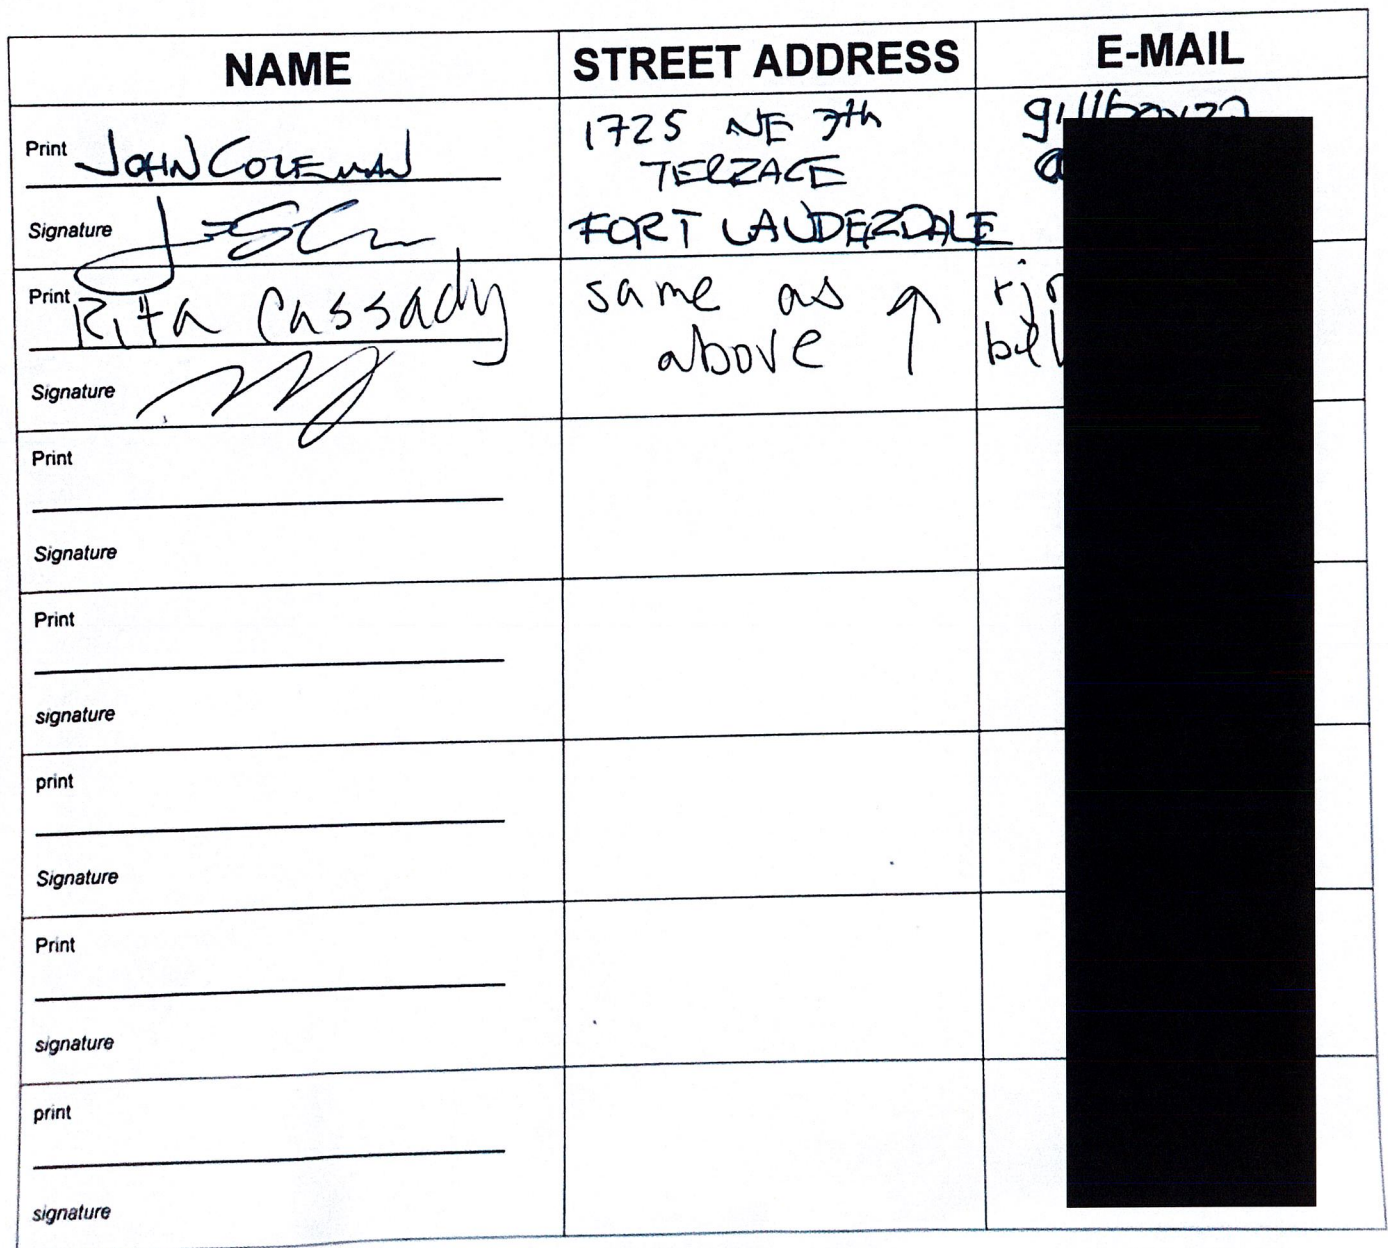 NAME STREET ADDRESS E-MAIL
Print JOHN COLEMAN
1725 NE 7th
TERRACE
FORT LAUDERDALE
Signature
Print Rita Cassady
same as ↑
above
Signature
Print
Signature
Print
signature
print
Signature
Print
signature
print
signature